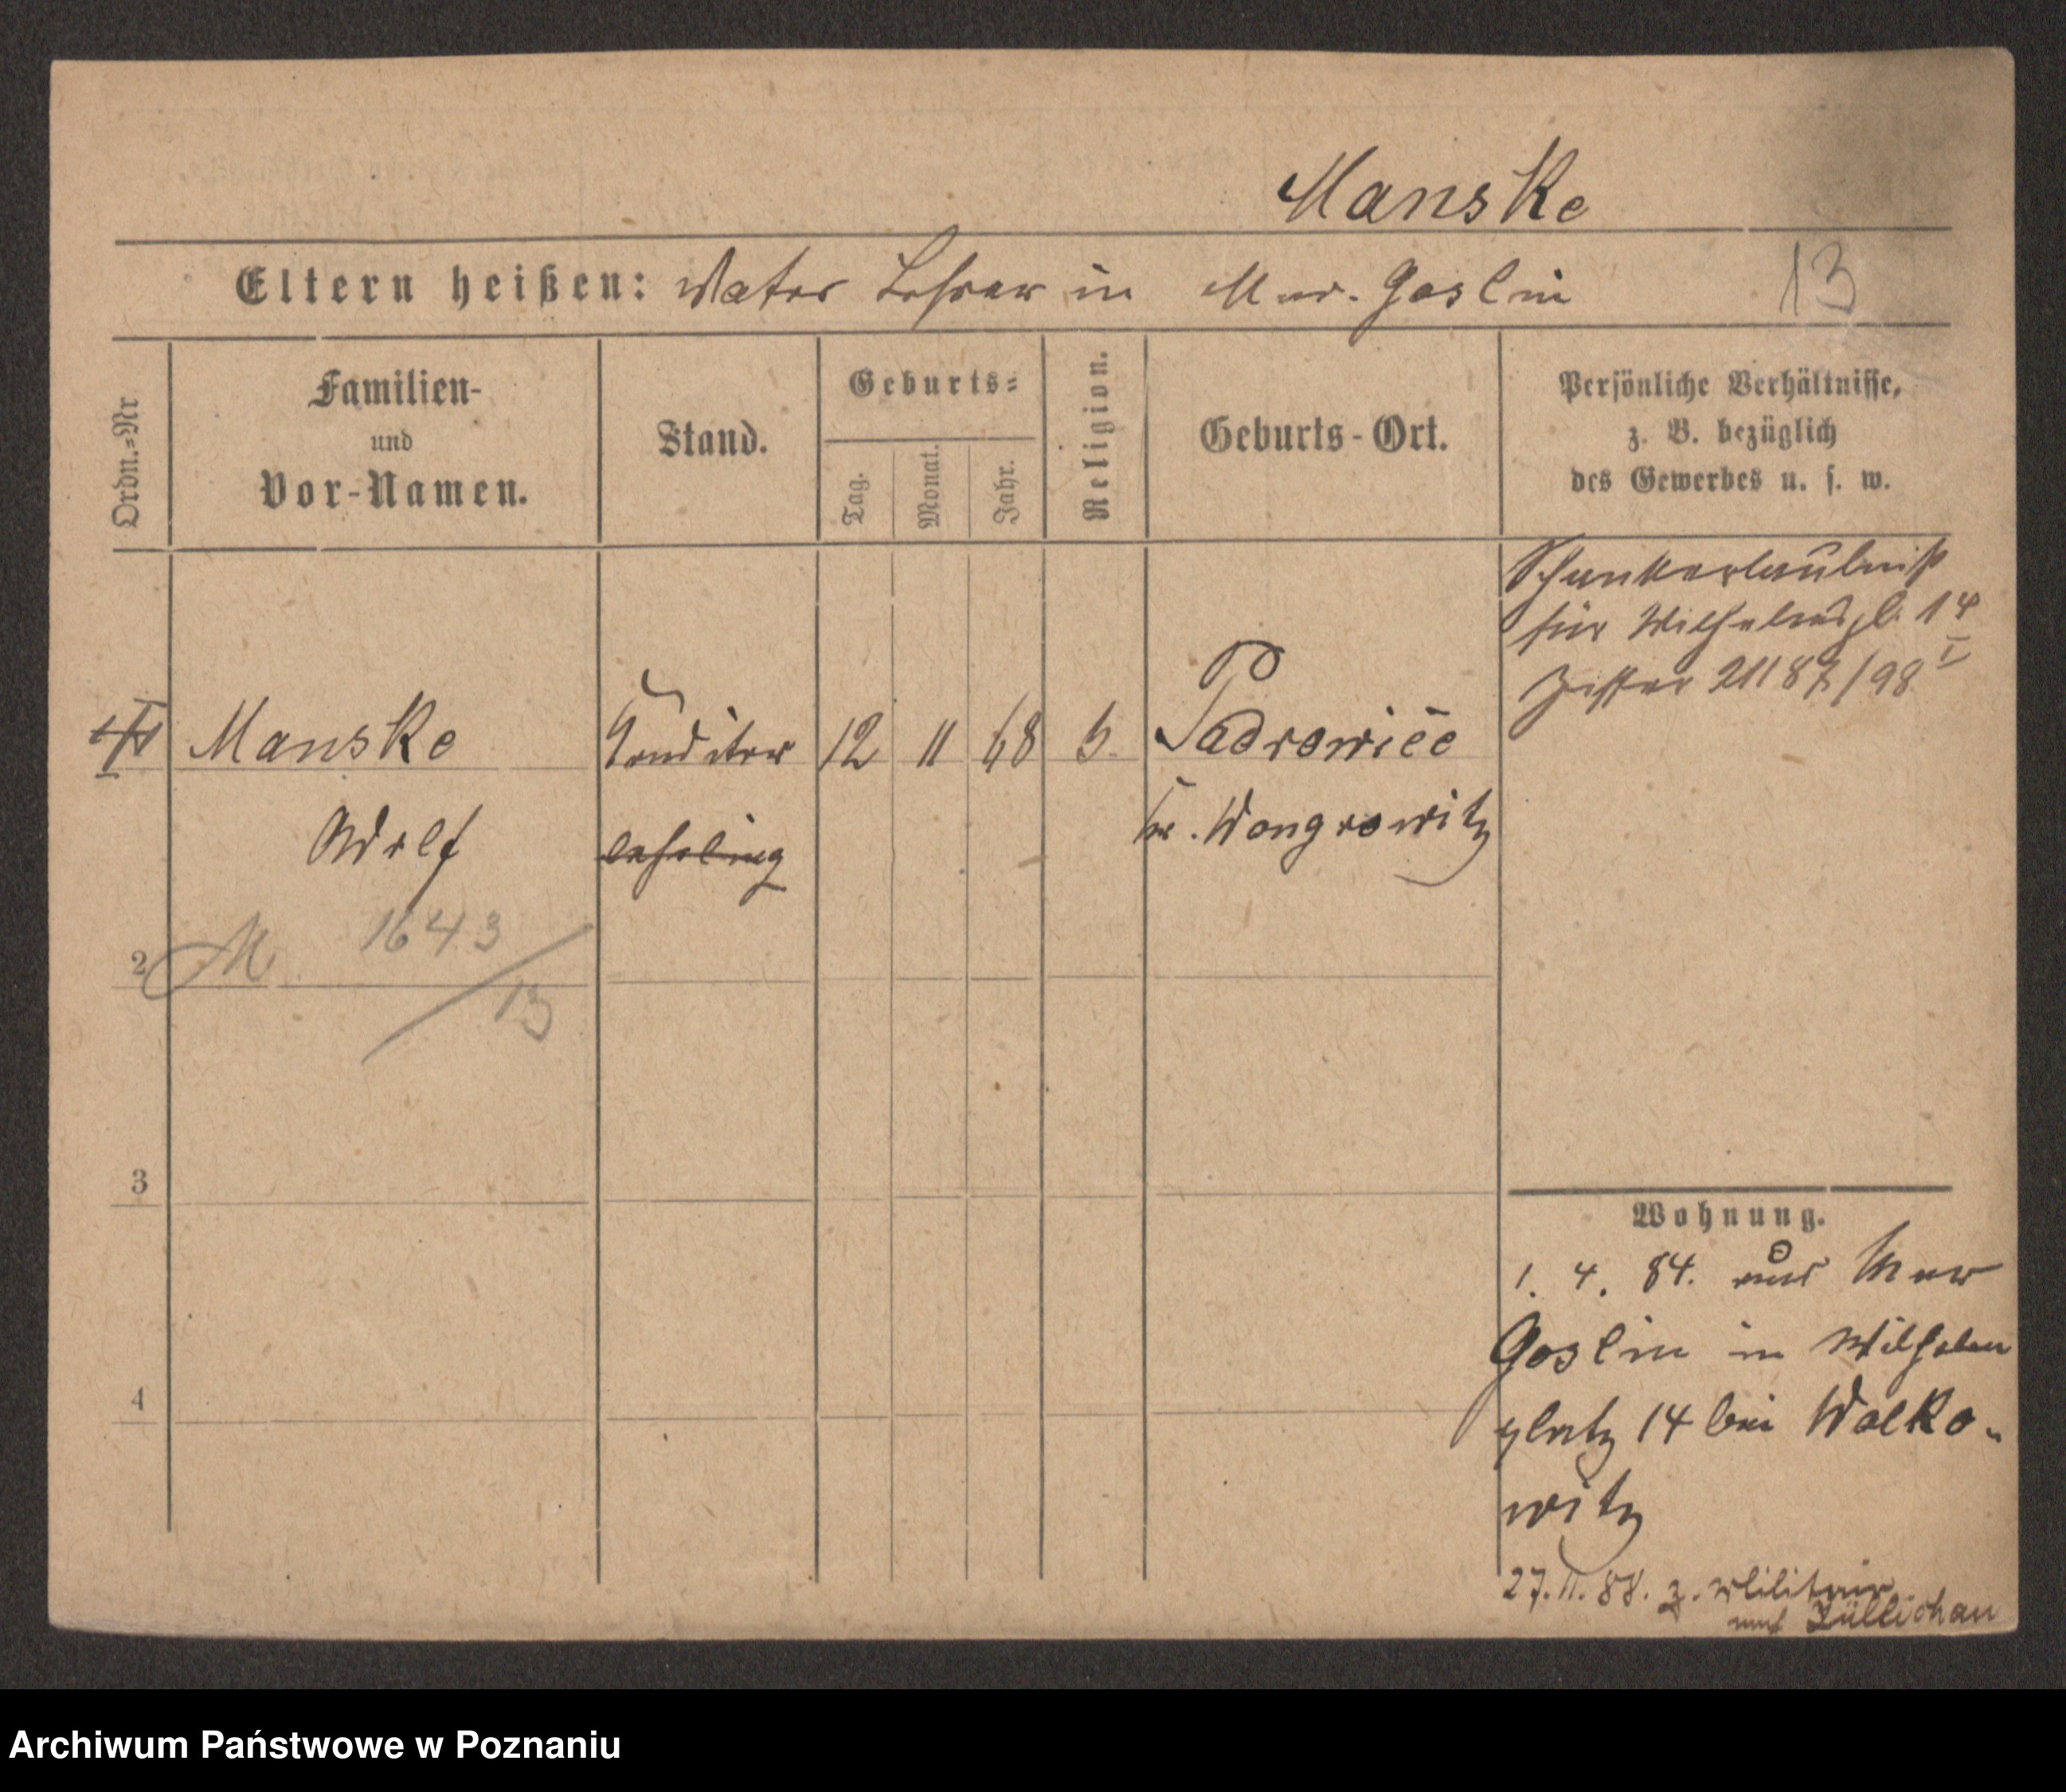 Manske
Eltern heißen: Vater Lehrer in Mur. Goslin 13
Ordn.=Nr
Familien-
und
Vor-Namen.
Stand.
Geburts=
Tag.
Monat.
Jahr.
Religion.
Geburts-Ort.
Persönliche Verhältnisse,
z. B. bezüglich
des Gewerbes u. s. w.
Schankerlaubniß
für Wilhelmspl. 14
Ziffer 21187/98 I
Manske Conditor 12 11 68 Padrowiec
Adolf lehrling Kr. Wongrowitz
2 M. 1643
/13
3
Wohnung.
1. 4. 84. aus Mur
Goslin in Wilhelm
4
platz 14 bei Wolko-
witz
27. 11. 88. z. Militair
nach Züllichau
Archiwum Państwowe w Poznaniu